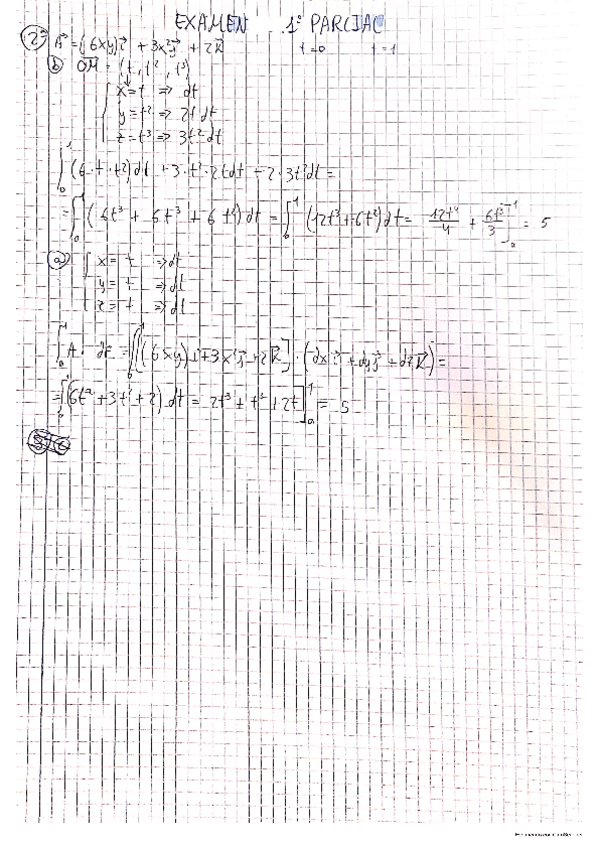 EXAMEN 1º PARCIAL
2º A⃗ = (6xy)i⃗ + 3x²j⃗ + 2k⃗ t=0 t=1
b OM = (t, t², t³)
{ x=t => dt
y=t² => 2t dt
z=t³ => 3t² dt
∫₀¹ (6·t·t²)dt + 3·t²·2t dt + 2·3t² dt =
= ∫₀¹ (6t³ + 6t³ + 6t²) dt = ∫₀¹ (12t³ + 6t²) dt = 12t⁴/4 + 6t³/3 ]₀¹ = 5
a { x = t => dt
y = t => dt
z = t => dt
∫₀¹ A · dr⃗ = ∫₀¹ [(6xy)i⃗ + 3x²j⃗ + 2k⃗] · (dx i⃗ + dy j⃗ + dz k⃗) =
= ∫₀¹ (6t² + 3t² + 2) dt = 2t³ + t³ + 2t ]₀¹ = 5